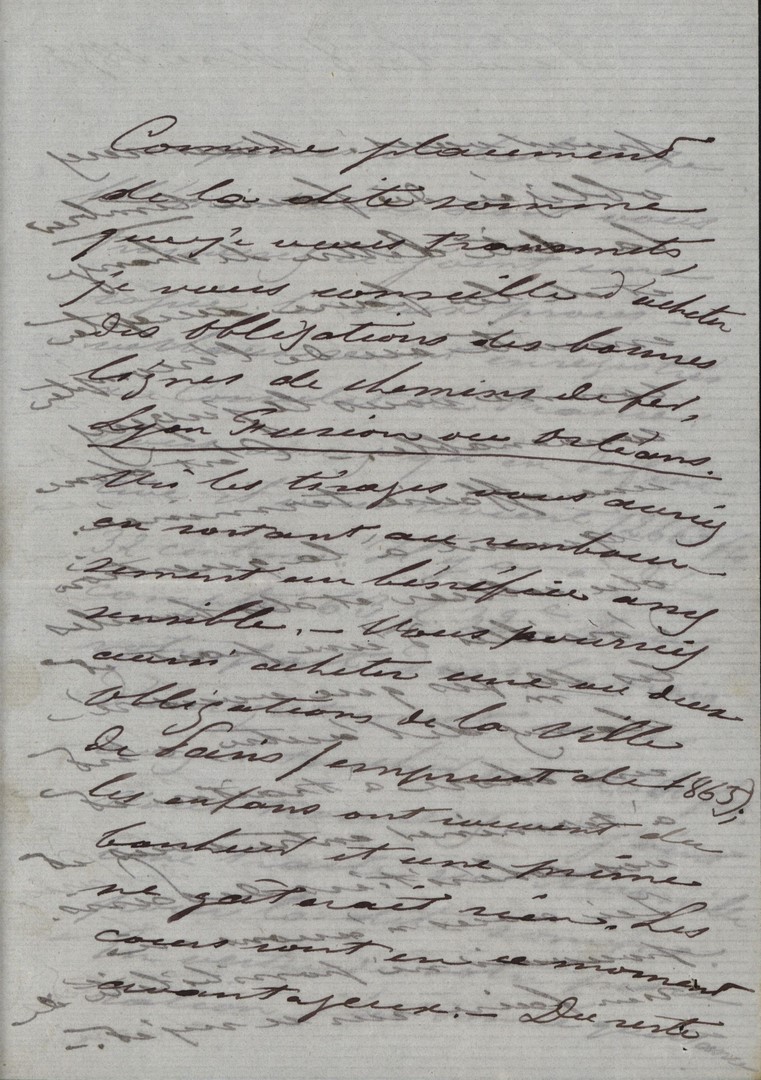 Comme placement
de la dite somme
que je vous transmets,
je vous conseille d'acheter
des obligations des bonnes
lignes de chemins de fer,
Lyon Fusion ou Orléans.
Vis les tirages vous auriez
en sortant, au rembour-
sement un bénéfice assez
sensible. — Vous pourriez
aussi acheter une ou deux
obligations de la Ville
de Paris (emprunt de 1865);
les enfans ont souvent du
bonheur et une prime
ne gâterait rien. Les
cours sont en ce moment
avantageux. — Du reste